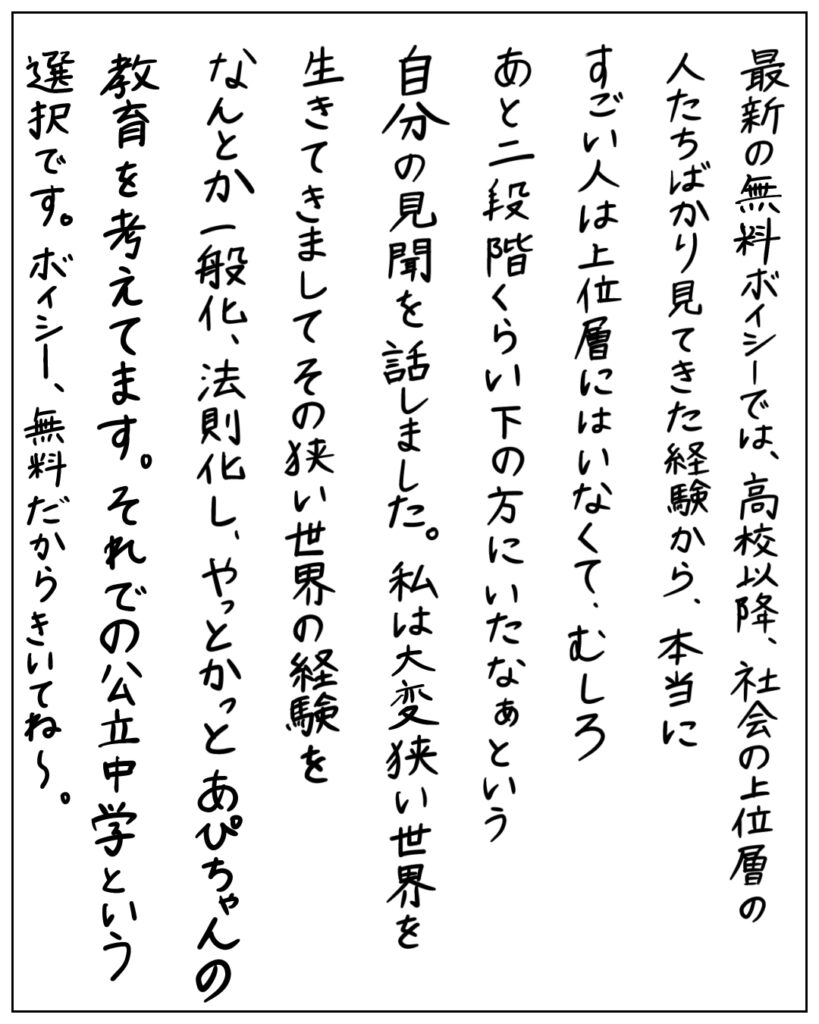 最新の無料ボイシーでは、高校以降、社会の上位層の
人たちばかり見てきた経験から、本当に
すごい人は上位層にはいなくて、むしろ
あと二段階くらい下の方にいたなぁという
自分の見聞を話しました。私は大変狭い世界を
生きてきましてその狭い世界の経験を
なんとか一般化、法則化し、やっとかっとあぴちゃんの
教育を考えてます。それでの公立中学という
選択です。ボイシー、無料だからきいてね〜。